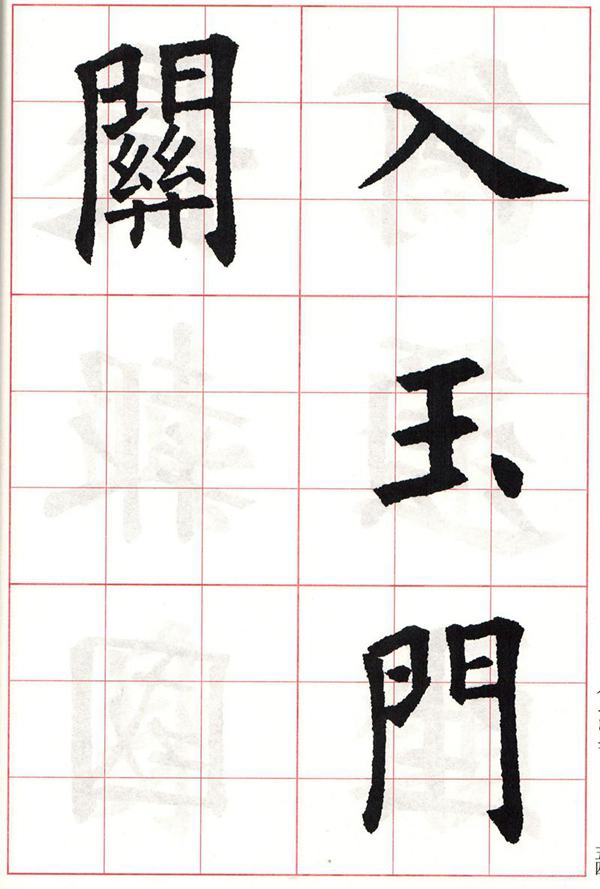 入玉門
關